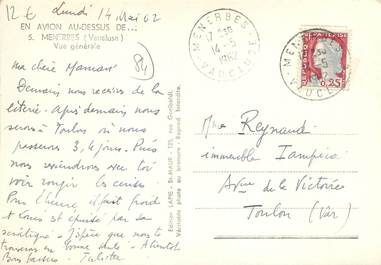 12 € Lundi 14 Mai 62
EN AVION AU-DESSUS DE...
5. MENERBES (Vaucluse)
Vue générale
84
Ma chère Maman
Demain nous recevons de la
literie. après demain nous
serons à Toulon où nous
passerons 3, 4 jours. Puis
nous reviendrons avec toi
voir rougir les cerises.
Pour l'heure, il fait froid
et Louis est épuisé par sa
sciatique. J'espère que nous te
trouverons en bonne santé. A bientôt
Bons baisers Juliette
Edition LAPIE - St-MAUR - 125, rue Garibaldi
Véritable photo au bromure - Reprod. interdite
MENERBES
14-5
1962
VAUCLUSE
MENERBES
VAUCLUSE
0,25
Mme Reynaud
immeuble
Avue de la Victoire
Toulon (Var)